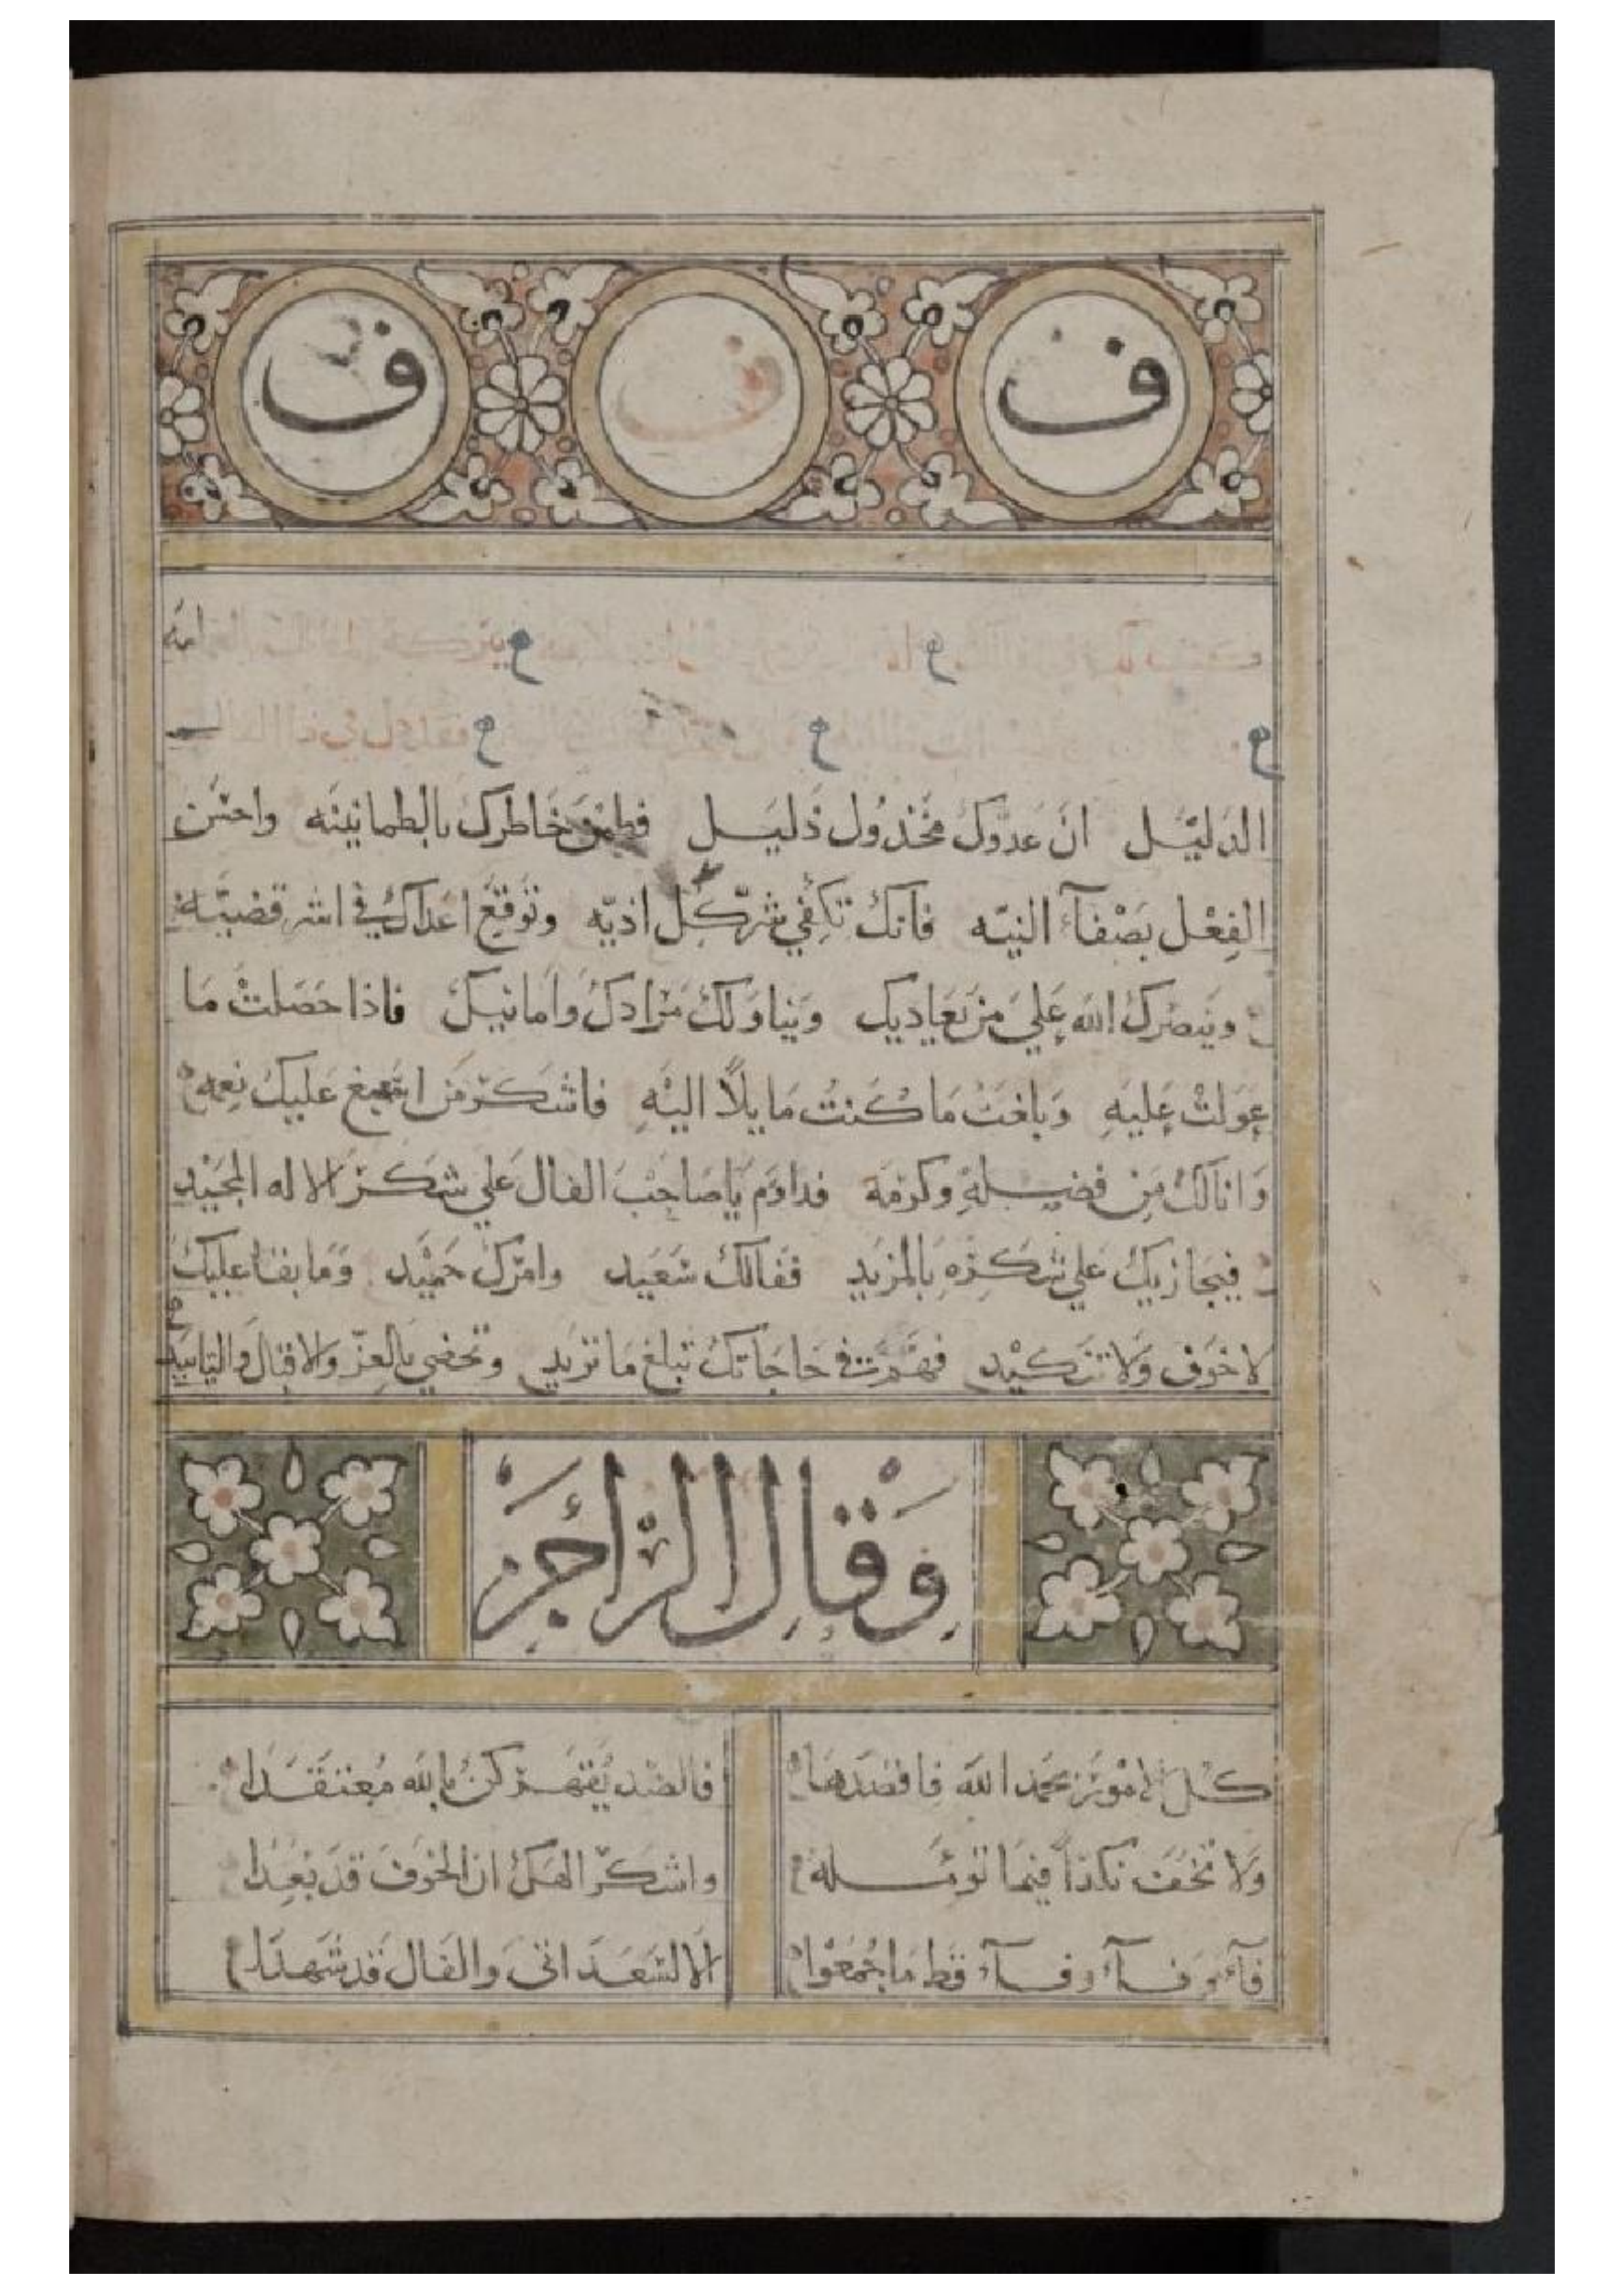 ف ف ف
الدليل ان عدوك مخذول ذليل فطمن خاطرك بالطمانينه واحسن
الفعل بصفآء النيه فانك تكفي شر كل اذيه وتوقع اعداك في اشر قضيه
وينصرك الله علي من يعاديك ويناولك مرادك وامانيك فاذا حصلت ما
عولت عليه وبلغت ما كنت مايلا اليه فاشكر من اسبغ عليك نعمه
وانالك من فضله وكرمه فداوم يا صاحب الفال علي شكر الاله المجيد
فيجازيك علي شكره بالمزيد ففالك سعيد وامرك حميد وما بقا عليك
لا خوف ولا تنكيد فهم في حاجاتك تبلغ ما تريد وتحضي بالعز والاقبال والتاييد
وقال الراجز
كل الامور بحمد الله فاقصدها فالضد يقهر كن بالله معتقدا
ولا تخف نكدا فيما توئمله واشكر الهك ان الخوف قد بعدا
فآء وفآء وفآء قط ما جمعوا الا لسعد اتى والفال قد شهدا